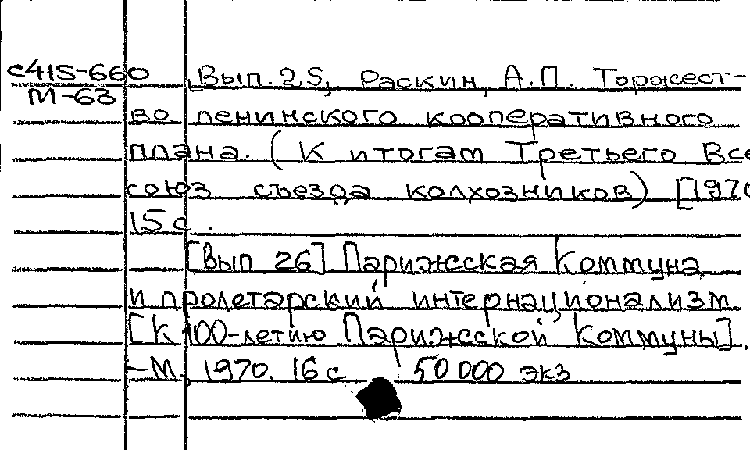 с415-660 Вып. 25, Раскин, А.П. Торжест-
М-63 во ленинского кооперативного
плана. (К итогам Третьего Все
союз съезда колхозников) [1970
15 с.
[Вып 26] Парижская Коммуна
и пролетарский интернационализм
[К 100-летию Парижской Коммуны].
-М., 1970. 16 с 50 000 экз